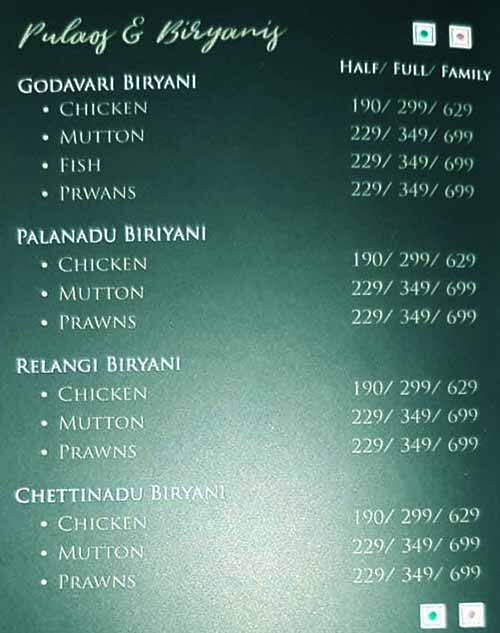 Pulaos & Biryanis
Half/ Full/ Family
Godavari Biryani
• Chicken 190/ 299/ 629
• Mutton 229/ 349/ 699
• Fish 229/ 349/ 699
• Prwans 229/ 349/ 699
Palanadu Biriyani
• Chicken 190/ 299/ 629
• Mutton 229/ 349/ 699
• Prawns 229/ 349/ 699
Relangi Biryani
• Chicken 190/ 299/ 629
• Mutton 229/ 349/ 699
• Prawns 229/ 349/ 699
Chettinadu Biryani
• Chicken 190/ 299/ 629
• Mutton 229/ 349/ 699
• Prawns 229/ 349/ 699